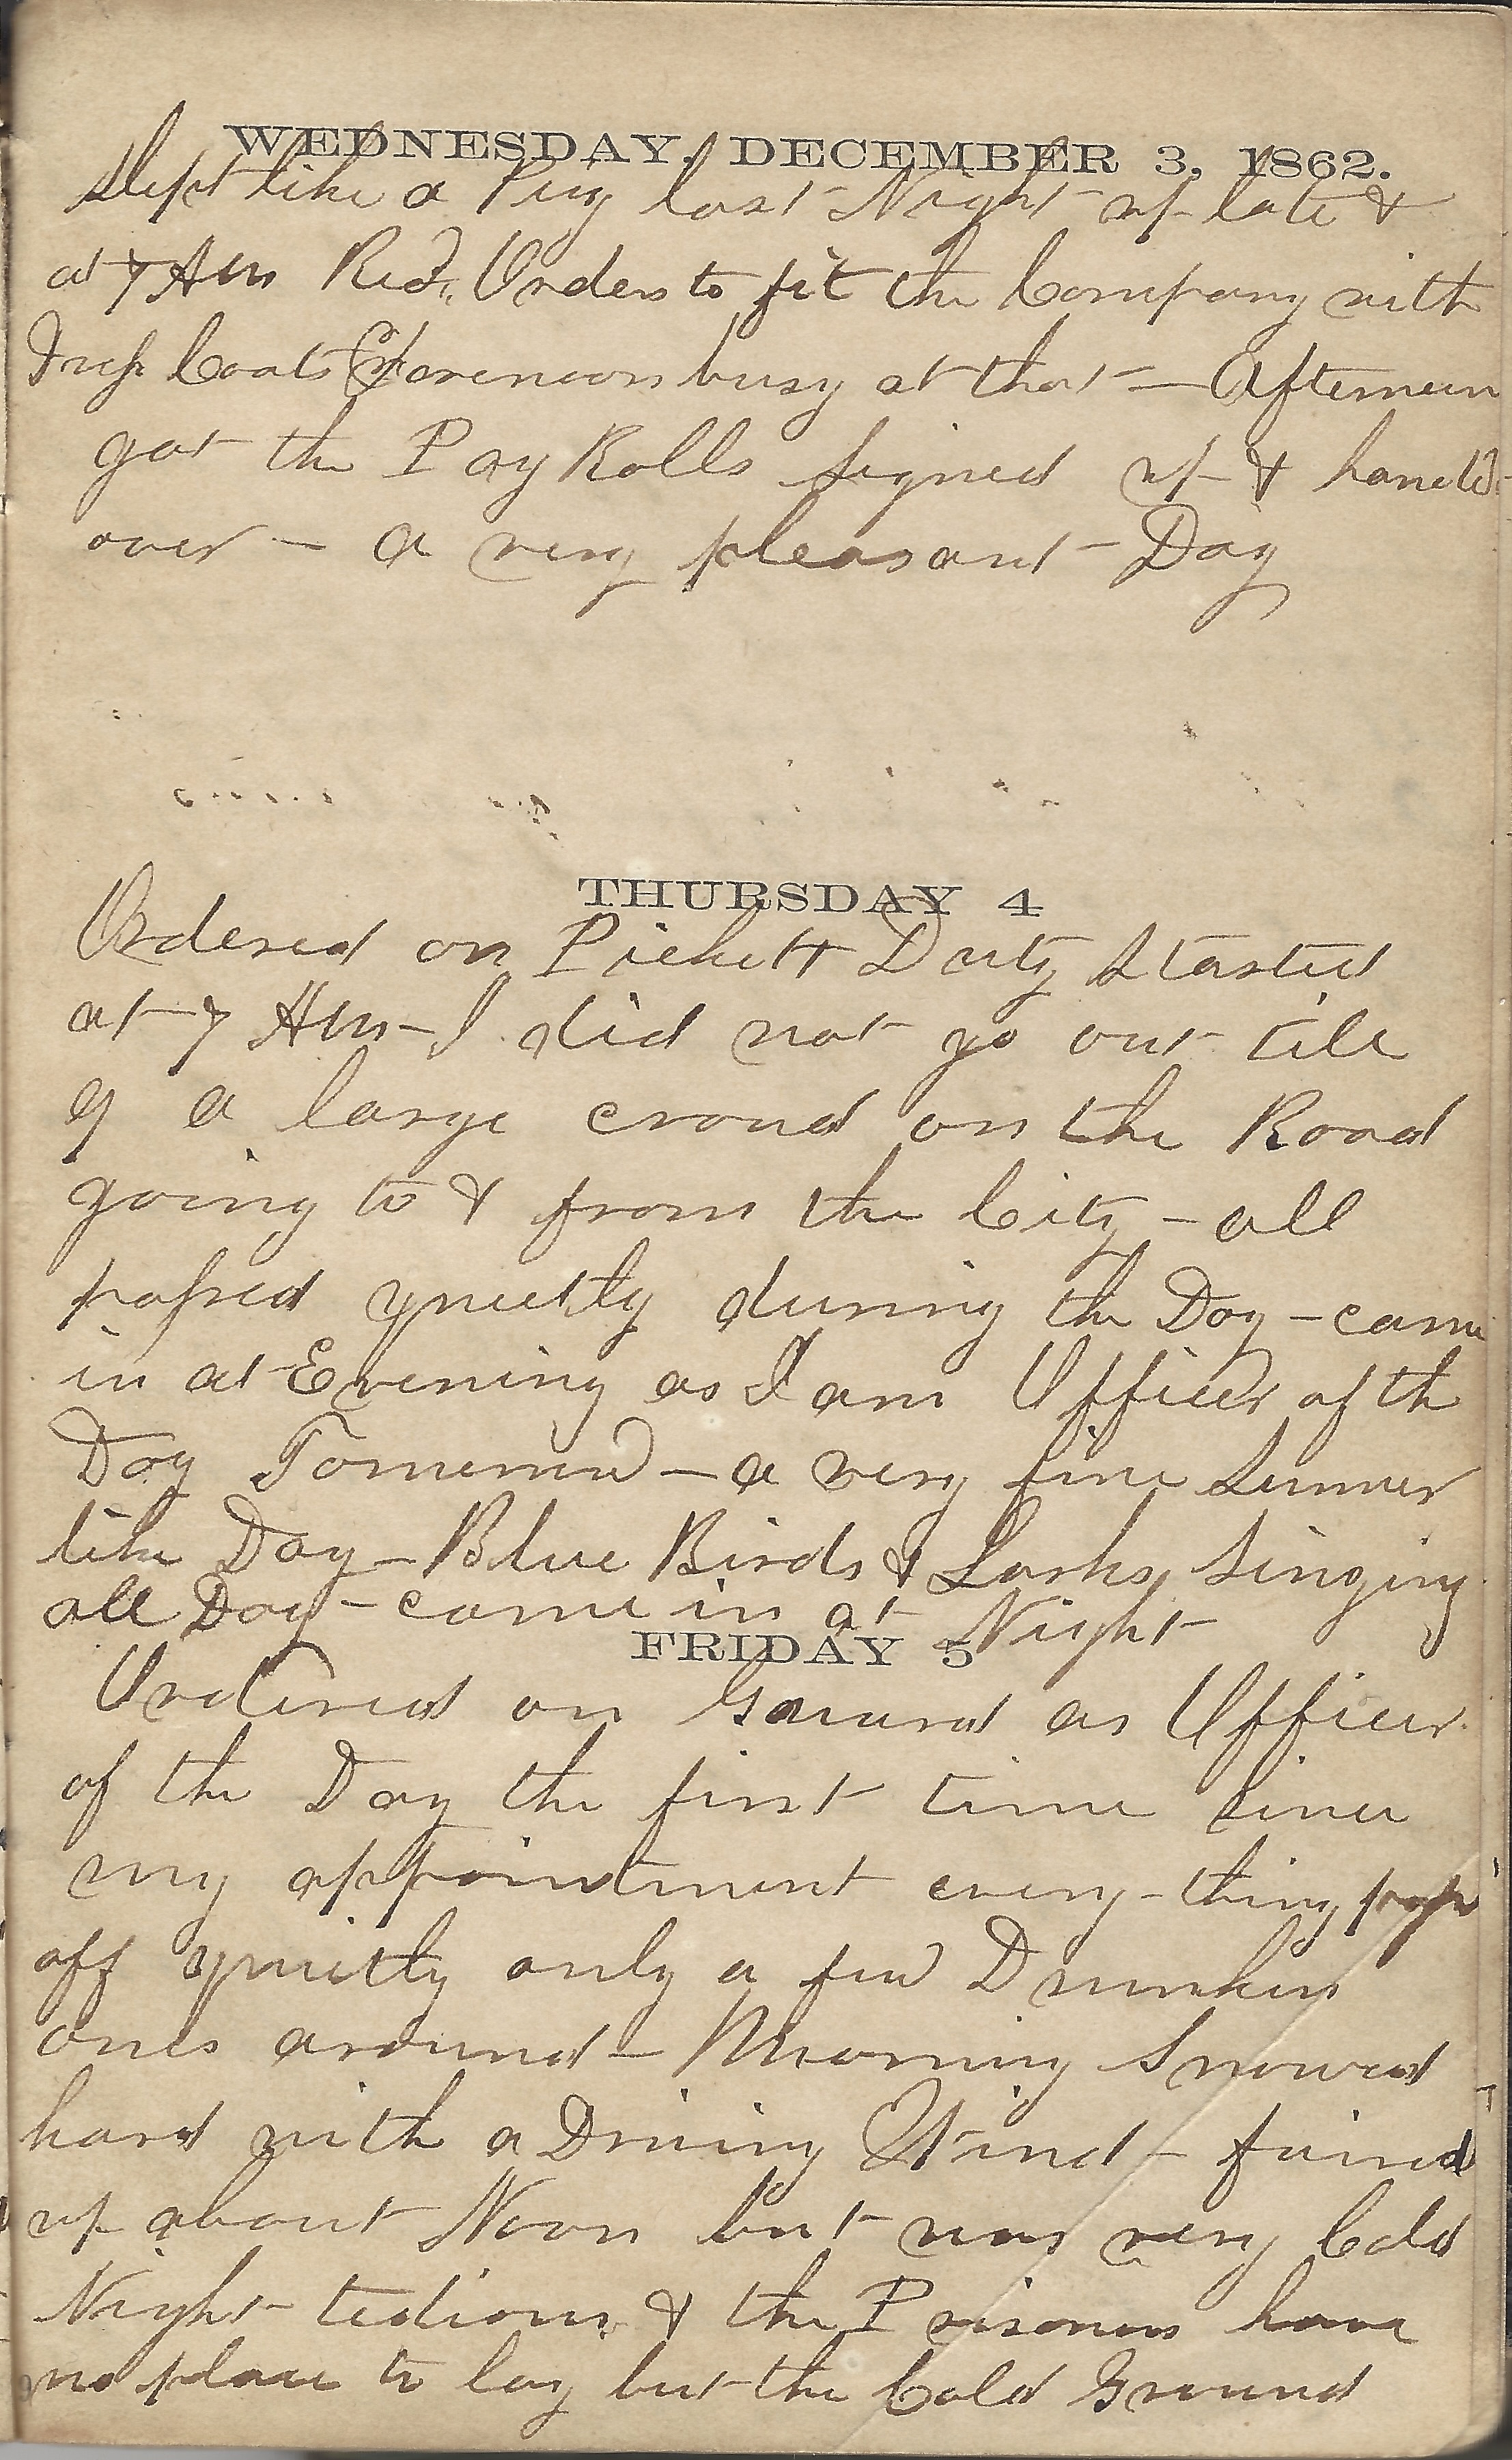 WEDNESDAY, DECEMBER 3, 1862.
Slept like a Pig last Night up late &
at 7 Am Recd. Orders to fit the Company with
Coats Forenoon busy at that — Afternoon
got the Pay Rolls signed up & handed
over — a very pleasant Day
THURSDAY 4
Ordered on Pickett Duty Started
at 7 Am — I did not go out till
9 a large croud on the Road
going to & from the City — all
passed quietly during the Day — came
in at Evening as I am Officer of th
Day Tomorrow — a very fine Summer
like Day — Blue Birds & Larks singing
all Day — came in at Night
FRIDAY 5
Ordered on Gaurd as Officer
of the Day the first time since
my appointment every-thing
off quietly only a few Drunken
ones around — Morning Snowed
hard with a Driving Wind — faired
up about Noon but was very Cold
Night tedious & the Prisoners have
no place to lay but the Cold Ground